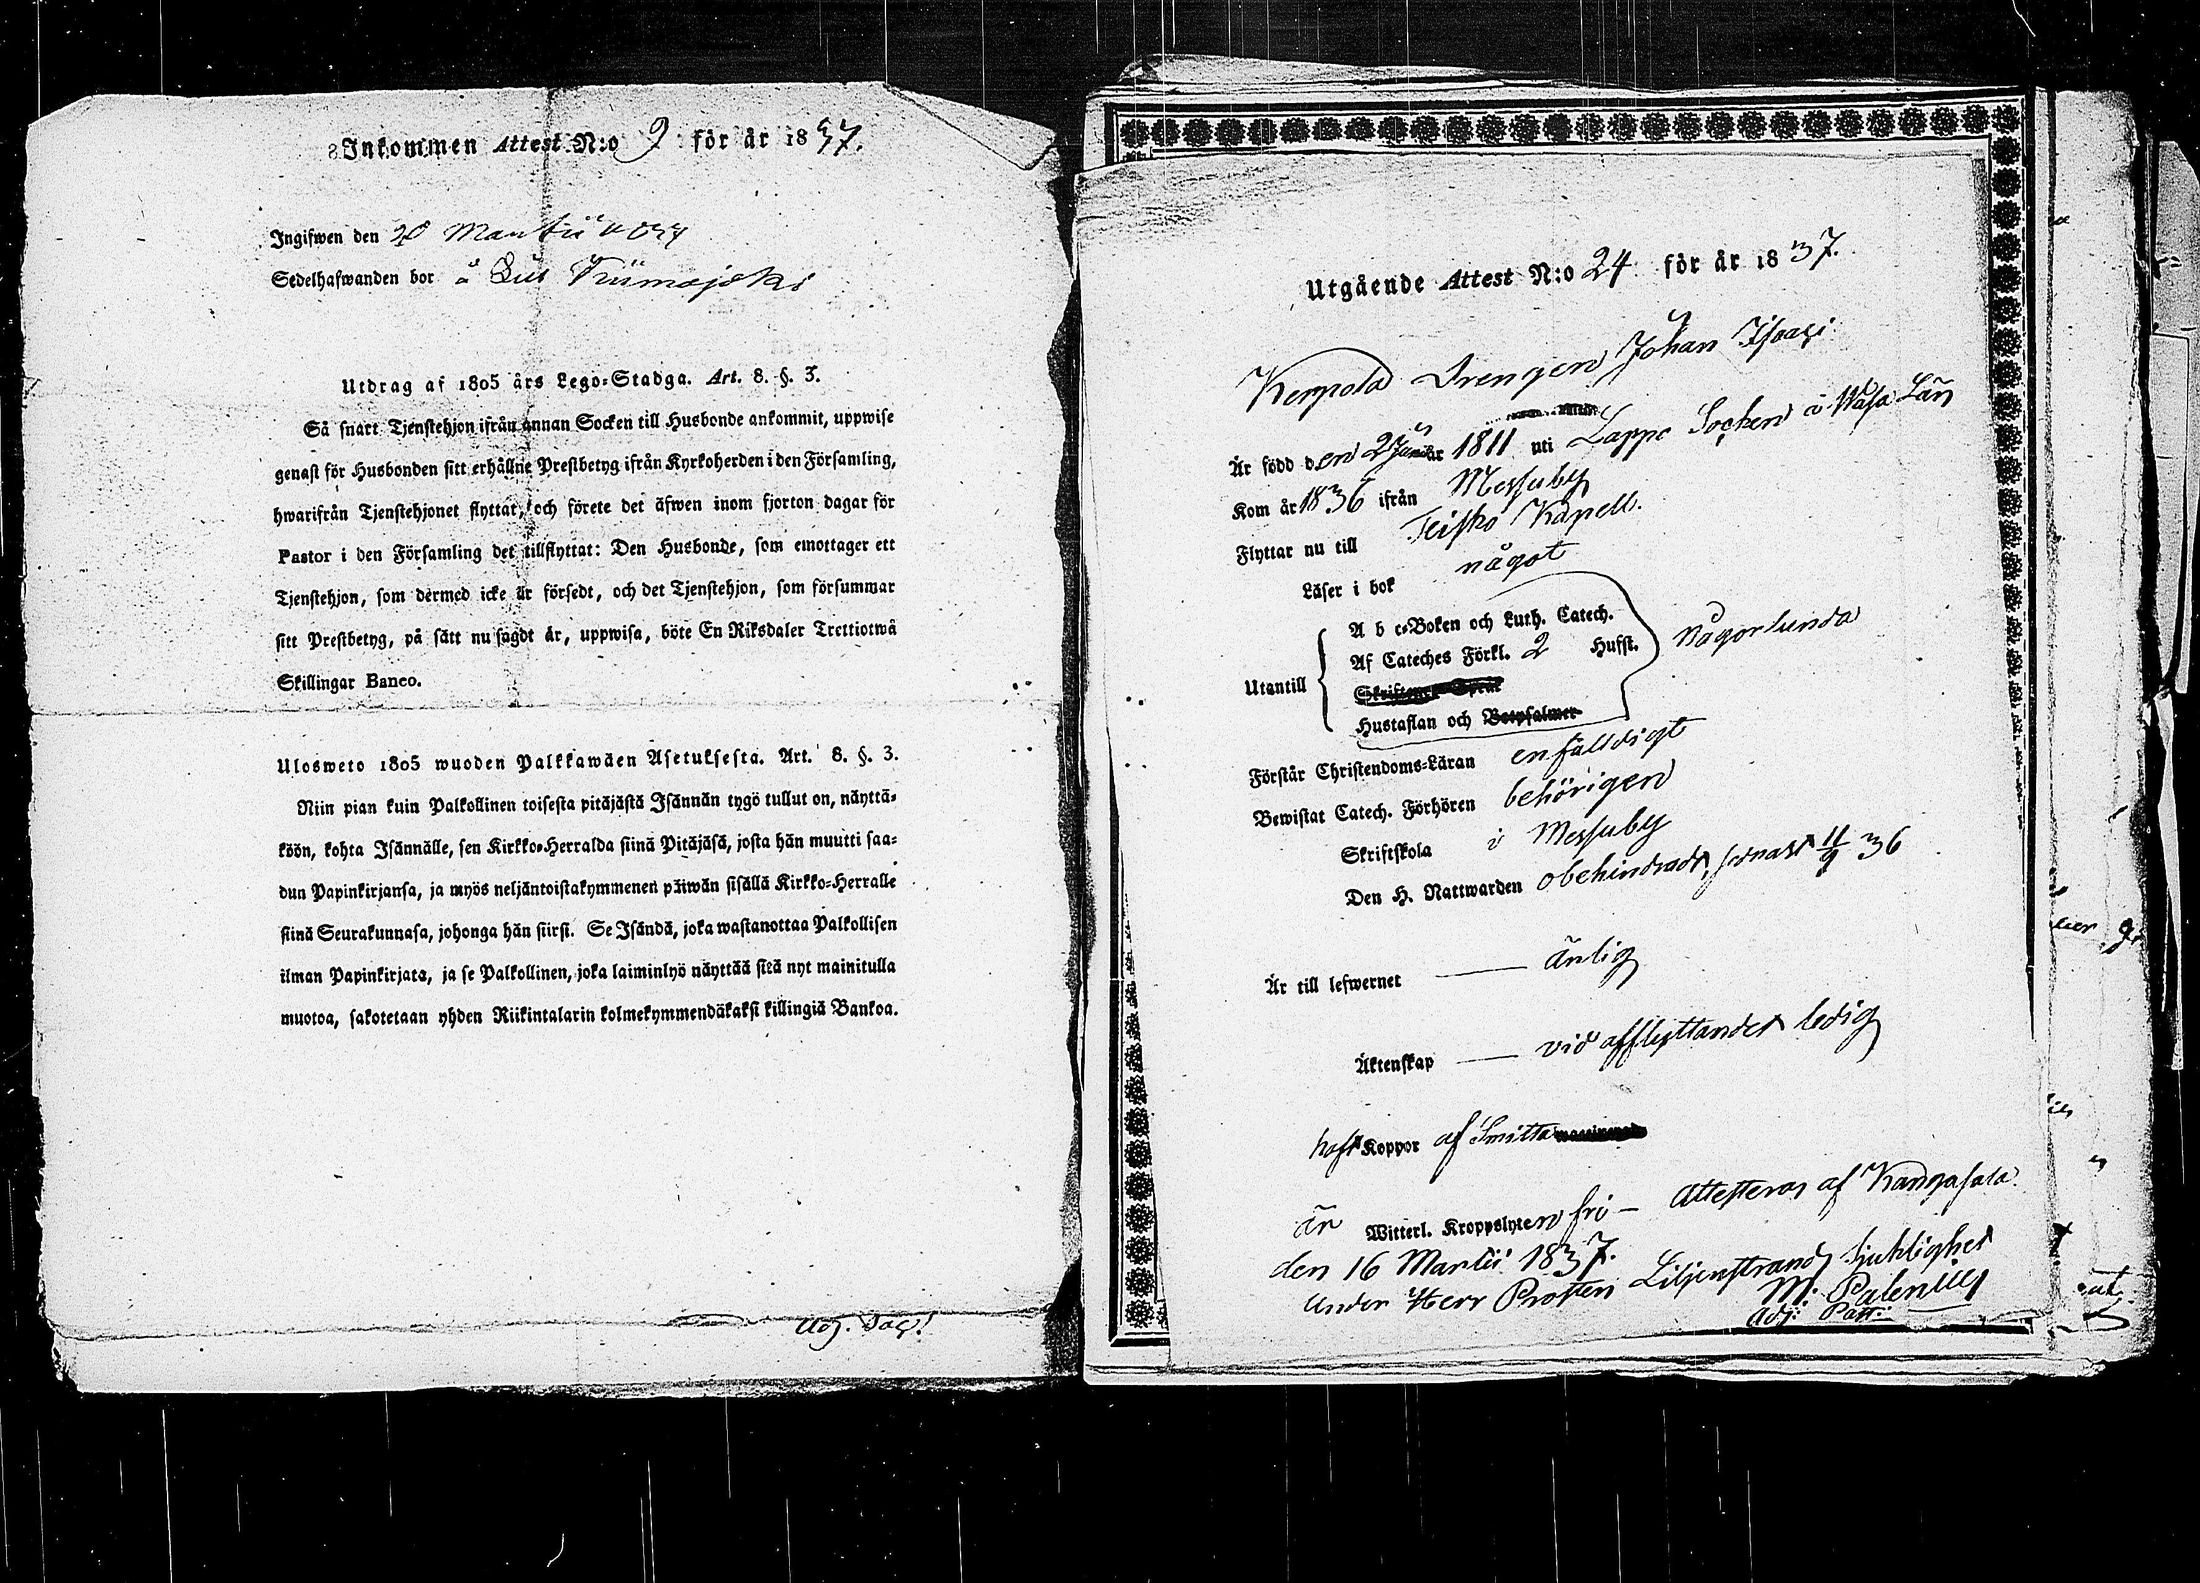 Inkommen Attest N:o 9 för år 1837.
Ingifwen den 20 Martii 1837
Sedelhafwanden bor å
Utdrag af 1805 års Lego-Stadga. Art. 8. §. 3.
Så snart Tjenstehjon ifrån annan Socken till Husbonde ankommit, uppwise
genast för Husbonden sitt erhållne Prestbetyg ifrån Kyrkoherden i den Församling,
hwarifrån Tjenstehjonet flyttat, och förete det äfwen inom fjorton dagar för
Pastor i den Församling det tillflyttat: Den Husbonde, som emottager ett
Tjenstehjon, som dermed icke är försedt, och det Tjenstehjon, som försummar
sitt Prestbetyg, på sätt nu sagdt är, uppwisa, böte En Riksdaler Trettiotwå
Skillingar Banco.
Ulosweto 1805 wuoden Palkkawäen Asetuksesta. Art. 8. §. 3.
Niin pian kuin Palkollinen toisesta pitäjästä Isännän tygö tullut on, näyttä-
köön, kohta Isännälle, sen Kirkko-Herralda siinä Pitäjäsä, josta hän muutti saa-
dun Papinkirjansa, ja myös neljäntoistakymmenen päiwän sisällä Kirkko-Herralle
siinä Seurakunnasa, johonga hän siirsi. Se Isändä, joka wastanottaa Palkollisen
ilman Papinkirjata, ja se Palkollinen, joka laiminlyö näyttää sitä nyt mainitulla
muotoa, sakotetaan yhden Riikintalarin kolmekymmendäkaksi killingiä Bankoa.
Utgående Attest N:o 24 för år 1837.
Drengen Johan
Är född den 2 Januar 1811 uti Lappo Socken i Wasa Län
Kom år 1836 ifrån Messuby
Flyttar nu till Teisko Kapell.
Läser i bok något
A b c-Boken och Luth. Catech.
Af Cateches Förkl. 2 Hufst. någorlunda
Utantill
Skriftenes Språk
Hustaflan och Botpsalmer
Förstår Christendoms-Läran enfälldigt
Bewistat Catech. Förhören behörigen
Skriftskola i Messuby
Den H. Nattwarden obehindradt, sednast 11/9 36
Är till lefwernet — ärlig
Äktenskap — vid afflyttandet ledig
haft Koppor af Smitta
är Witterl. Kroppslyten fri — Attesteras af Kangasala
den 16 Martii 1837.
Under Herr Prosten Liljenstrands sjuklighet
M. Palenius
Adj: Past: